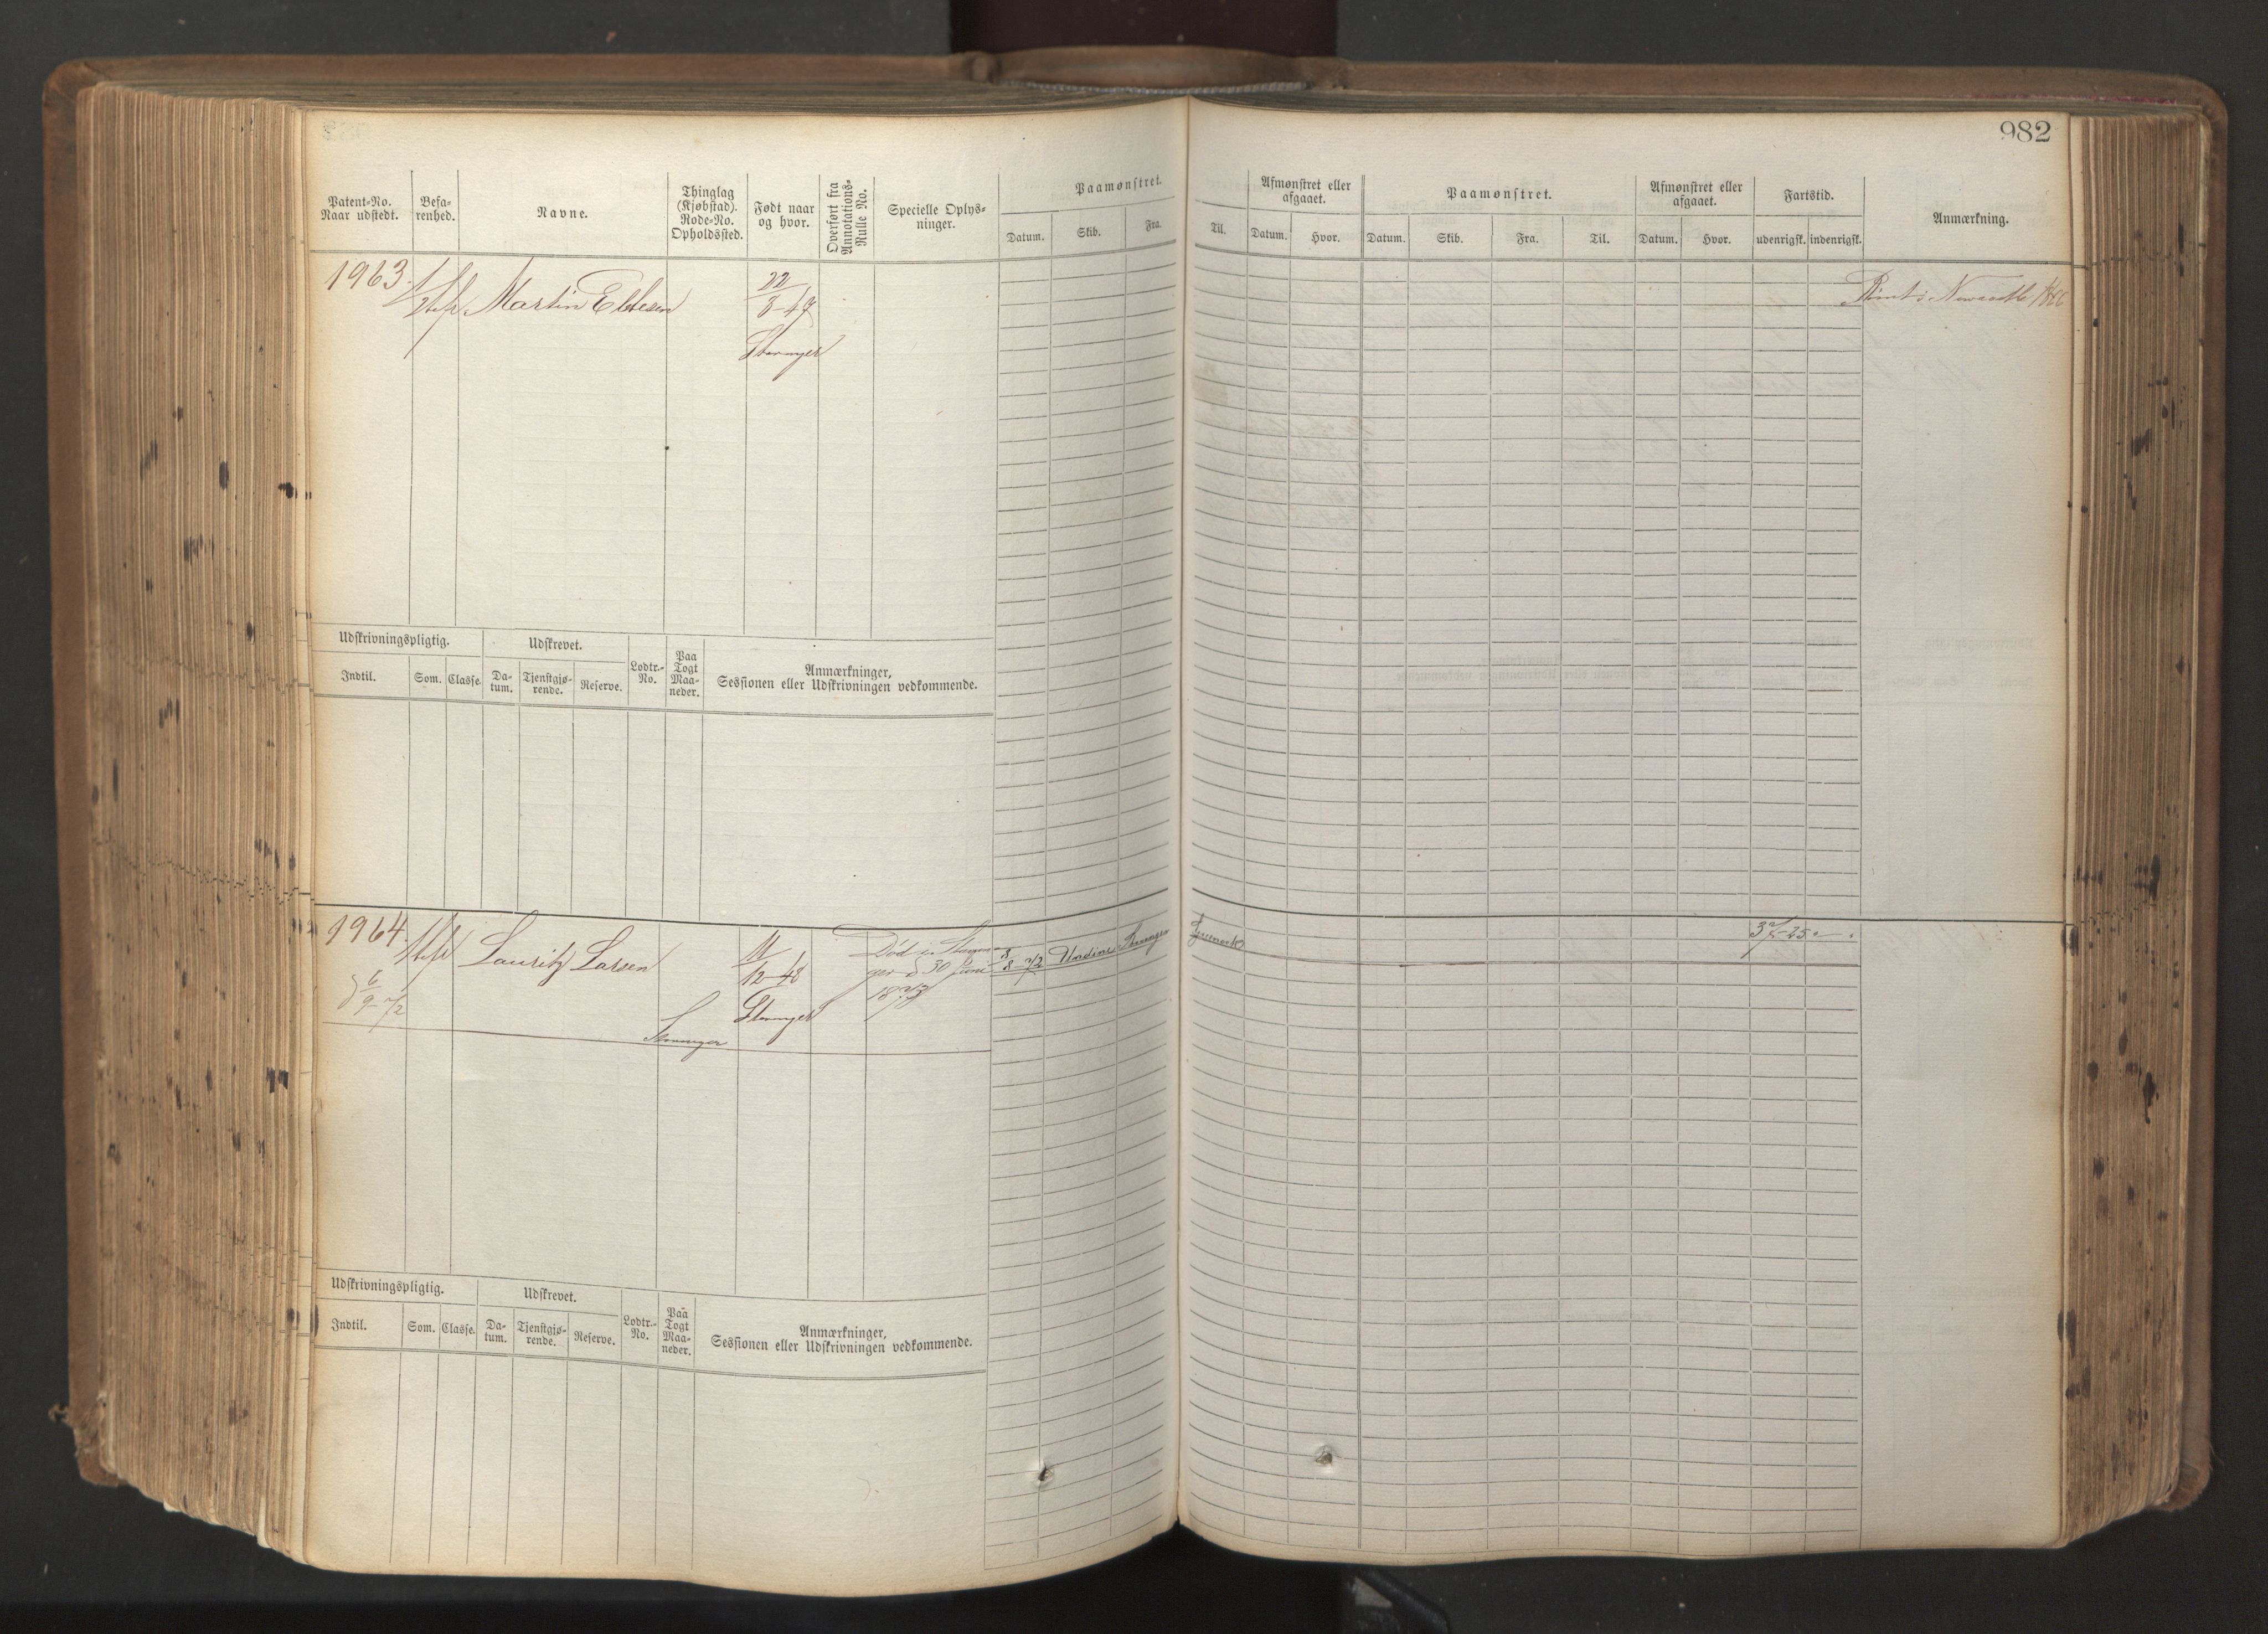 982
Patent-No.
Naar udstedt.
Befa-
renhed.
Navne.
Thinglag
(Kjøbstad).
Rode-No.
Opholdssted.
Født naar
og hvor.
Overført fra
Annotations-
Rulle No.
Specielle Oplys-
ninger.
Paamønstret.
Datum. Skib. Fra.
Til.
Afmønstret eller
afgaaet.
Datum. Hvor.
Paamønstret.
Datum. Skib. Fra. Til.
Afmønstret eller
afgaaet.
Datum. Hvor.
Fartstid.
udenrigsk. indenrigsk.
Anmærkning.
1963.
Martin Ellefsen
22
8-47
Stavanger
Newcastle
Udskrivningspligtig.
Indtil. Som. Classe.
Udskrevet.
Da-
tum.
Tjenstgjø-
rende.
Reserve.
Lodtr.-
No.
Paa
Togt
Maa-
neder.
Anmærkninger,
Sessionen eller Udskrivningen vedkommende.
1964.
Lauritz Larsen
6
9-72
Stavanger
11
12-48
Stavanger
Død i Stavan-
ger d 30 Juni
1873
8-72 Undine Stavanger
Udskrivningspligtig.
Indtil. Som. Classe.
Udskrevet.
Da-
tum.
Tjenstgjø-
rende.
Reserve.
Lodtr.-
No.
Paa
Togt
Maa-
neder.
Anmærkninger,
Sessionen eller Udskrivningen vedkommende.